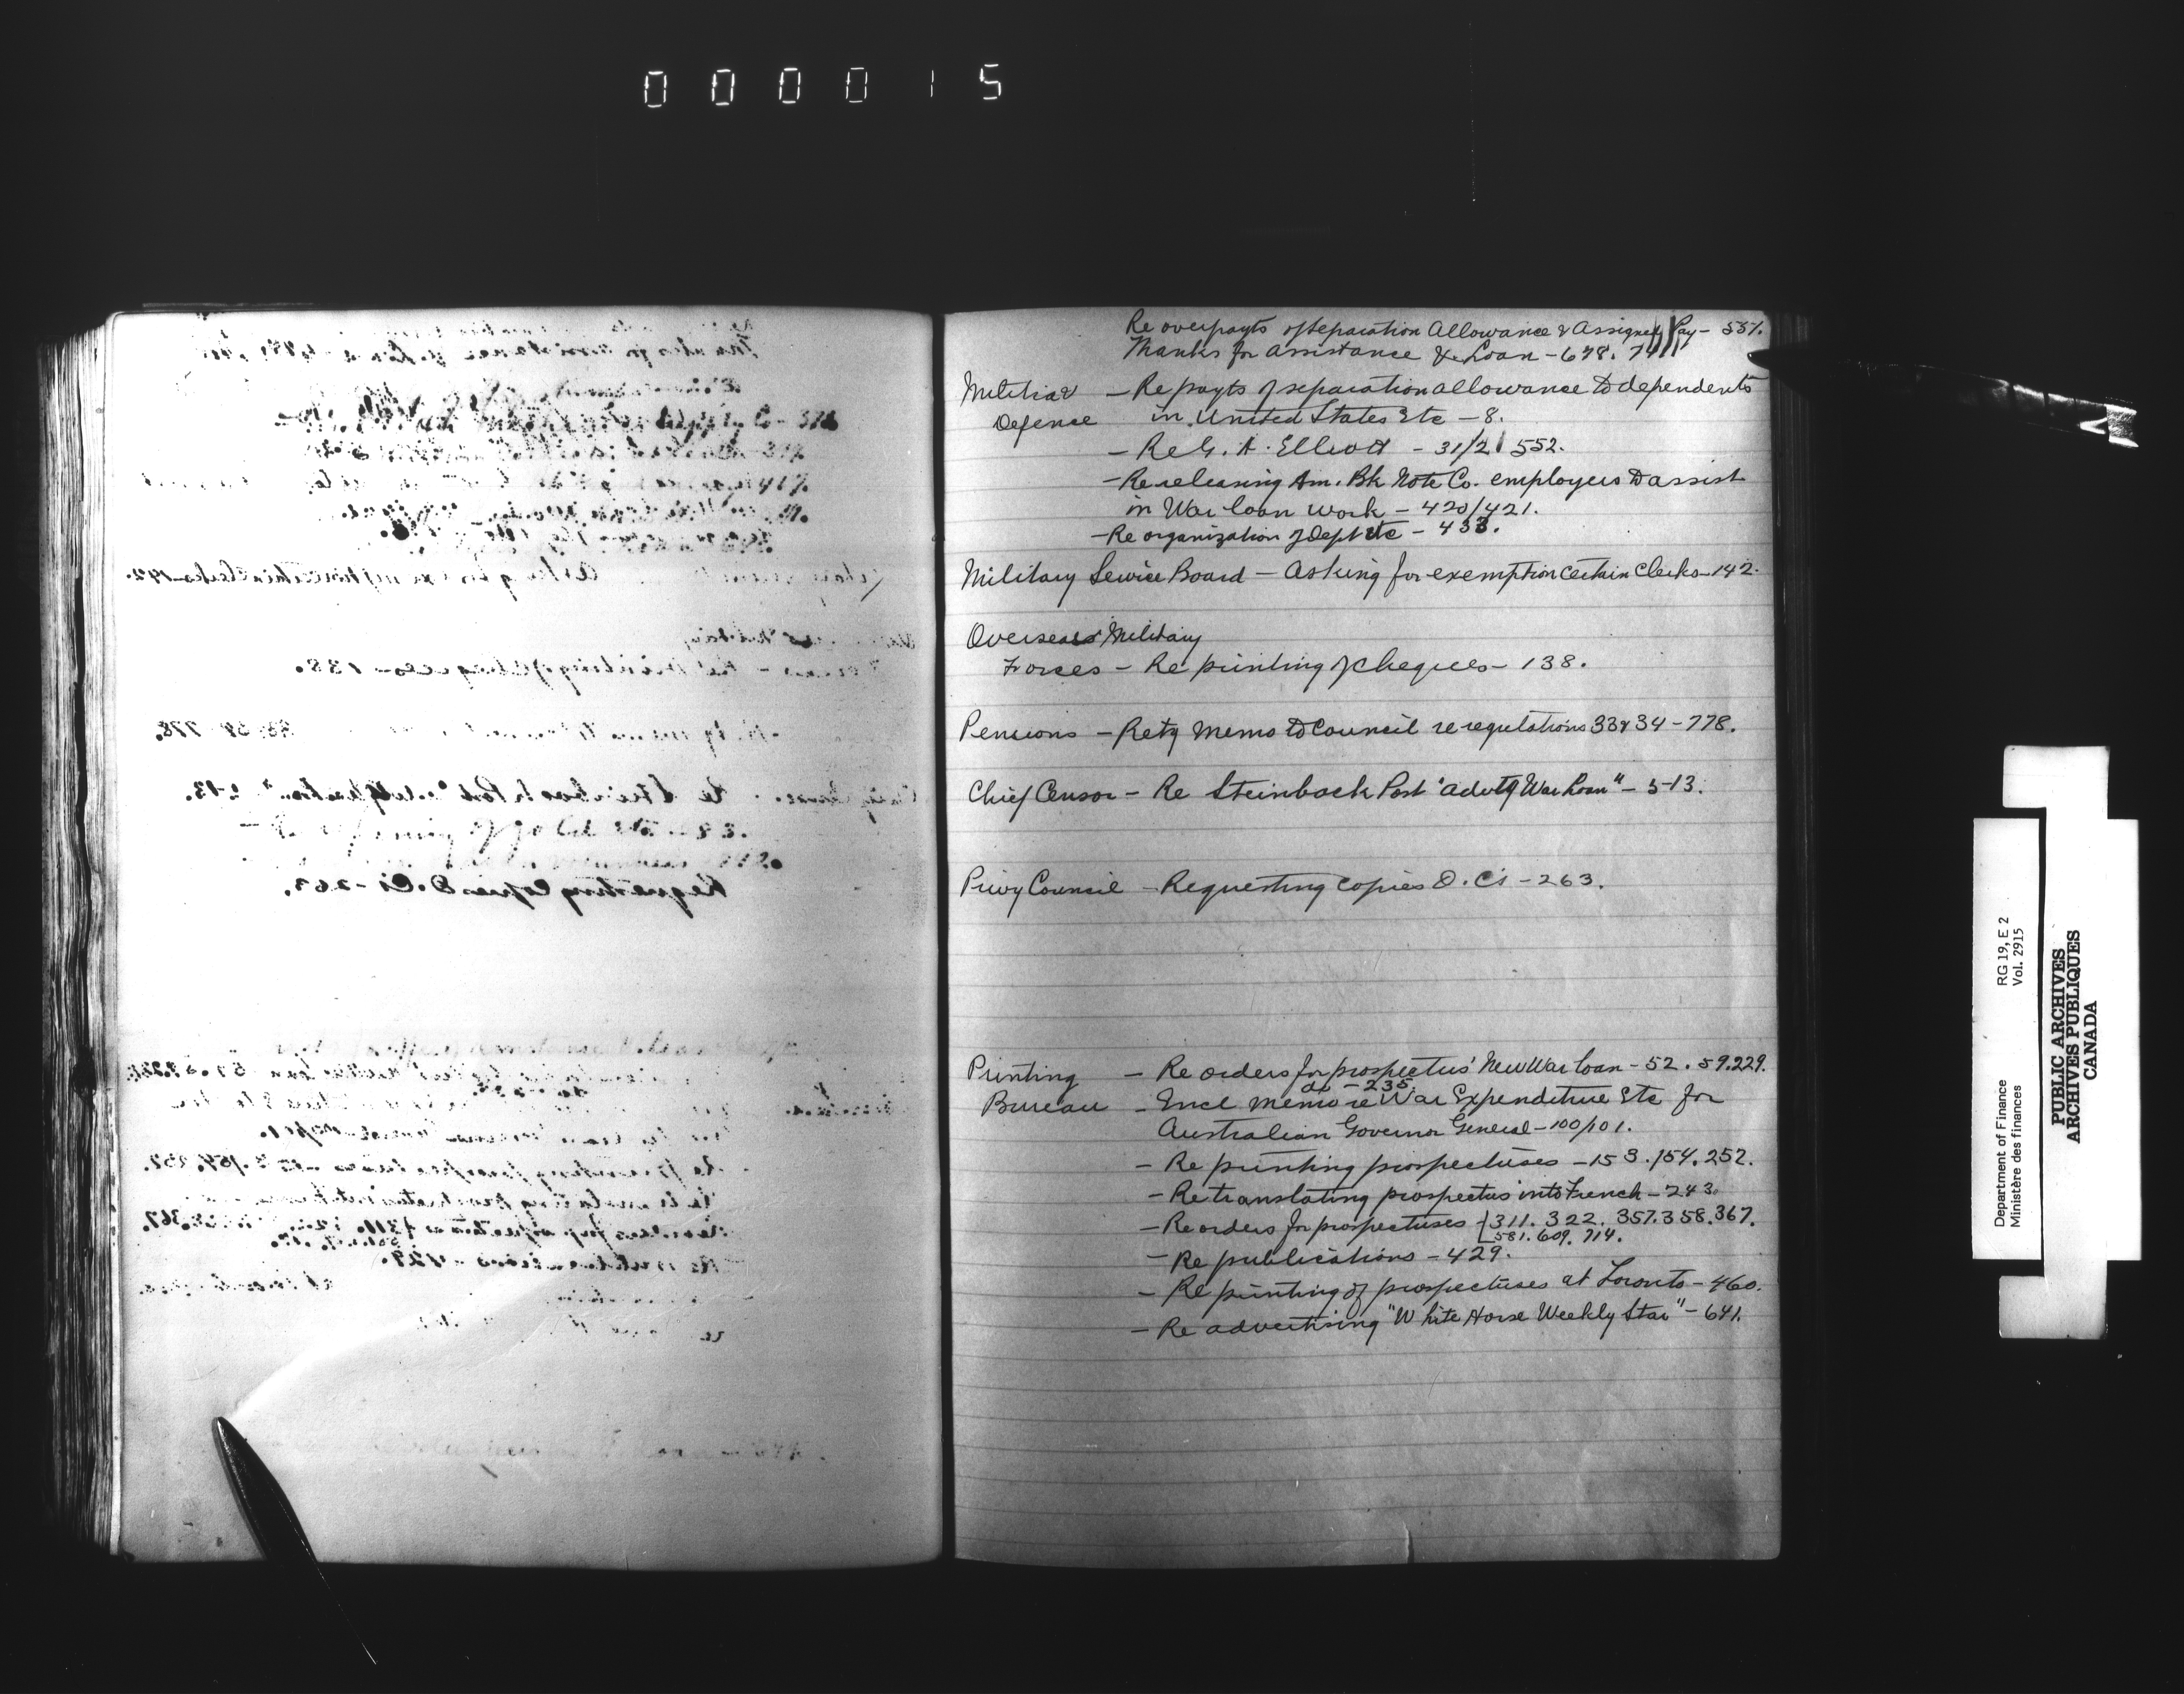 000015
Re overpayts of Separation Allowance & Assigned Pay - 551.
Thanks for assistance re Loan - 678.
Militia &
Defence
- Re payts of separation allowance to dependents
in United States Etc - 8.
- Re G. A. Elliott - 31/2 552.
- Re releasing Am. Bk Note Co. employees to assist
in War loan work - 420/421.
- Re organization of Dept Etc - 433.
Military Service Board - Asking for exemption certain Clerks - 142.
Overseas Military
Forces - Re printing of cheques - 138.
Pensions - Retg Memo to Council re regulations 33 & 34 - 778.
Chief Censor - Re Steinback Post "advtg War Loan" - 513.
Privy Council - Requesting copies O. C's - 263.
Printing
Bureau
- Re orders for prospectus' New War Loan - 52. 59. 229.
do - 235.
- Encl memo re War Expenditure Etc for
Australian Governor General - 100/101.
- Re printing prospectuses - 153. 154. 252.
- Re translating prospectus into French - 243.
- Re orders for prospectuses {311. 322. 357. 358. 367.
581. 609. 714.
- Re publications - 429.
- Re printing of prospectuses at Toronto - 460.
- Re advertising "White Horse Weekly Star" - 641.
Department of Finance
Ministère des finances
RG 19, E 2
Vol. 2915
PUBLIC ARCHIVES
ARCHIVES PUBLIQUES
CANADA